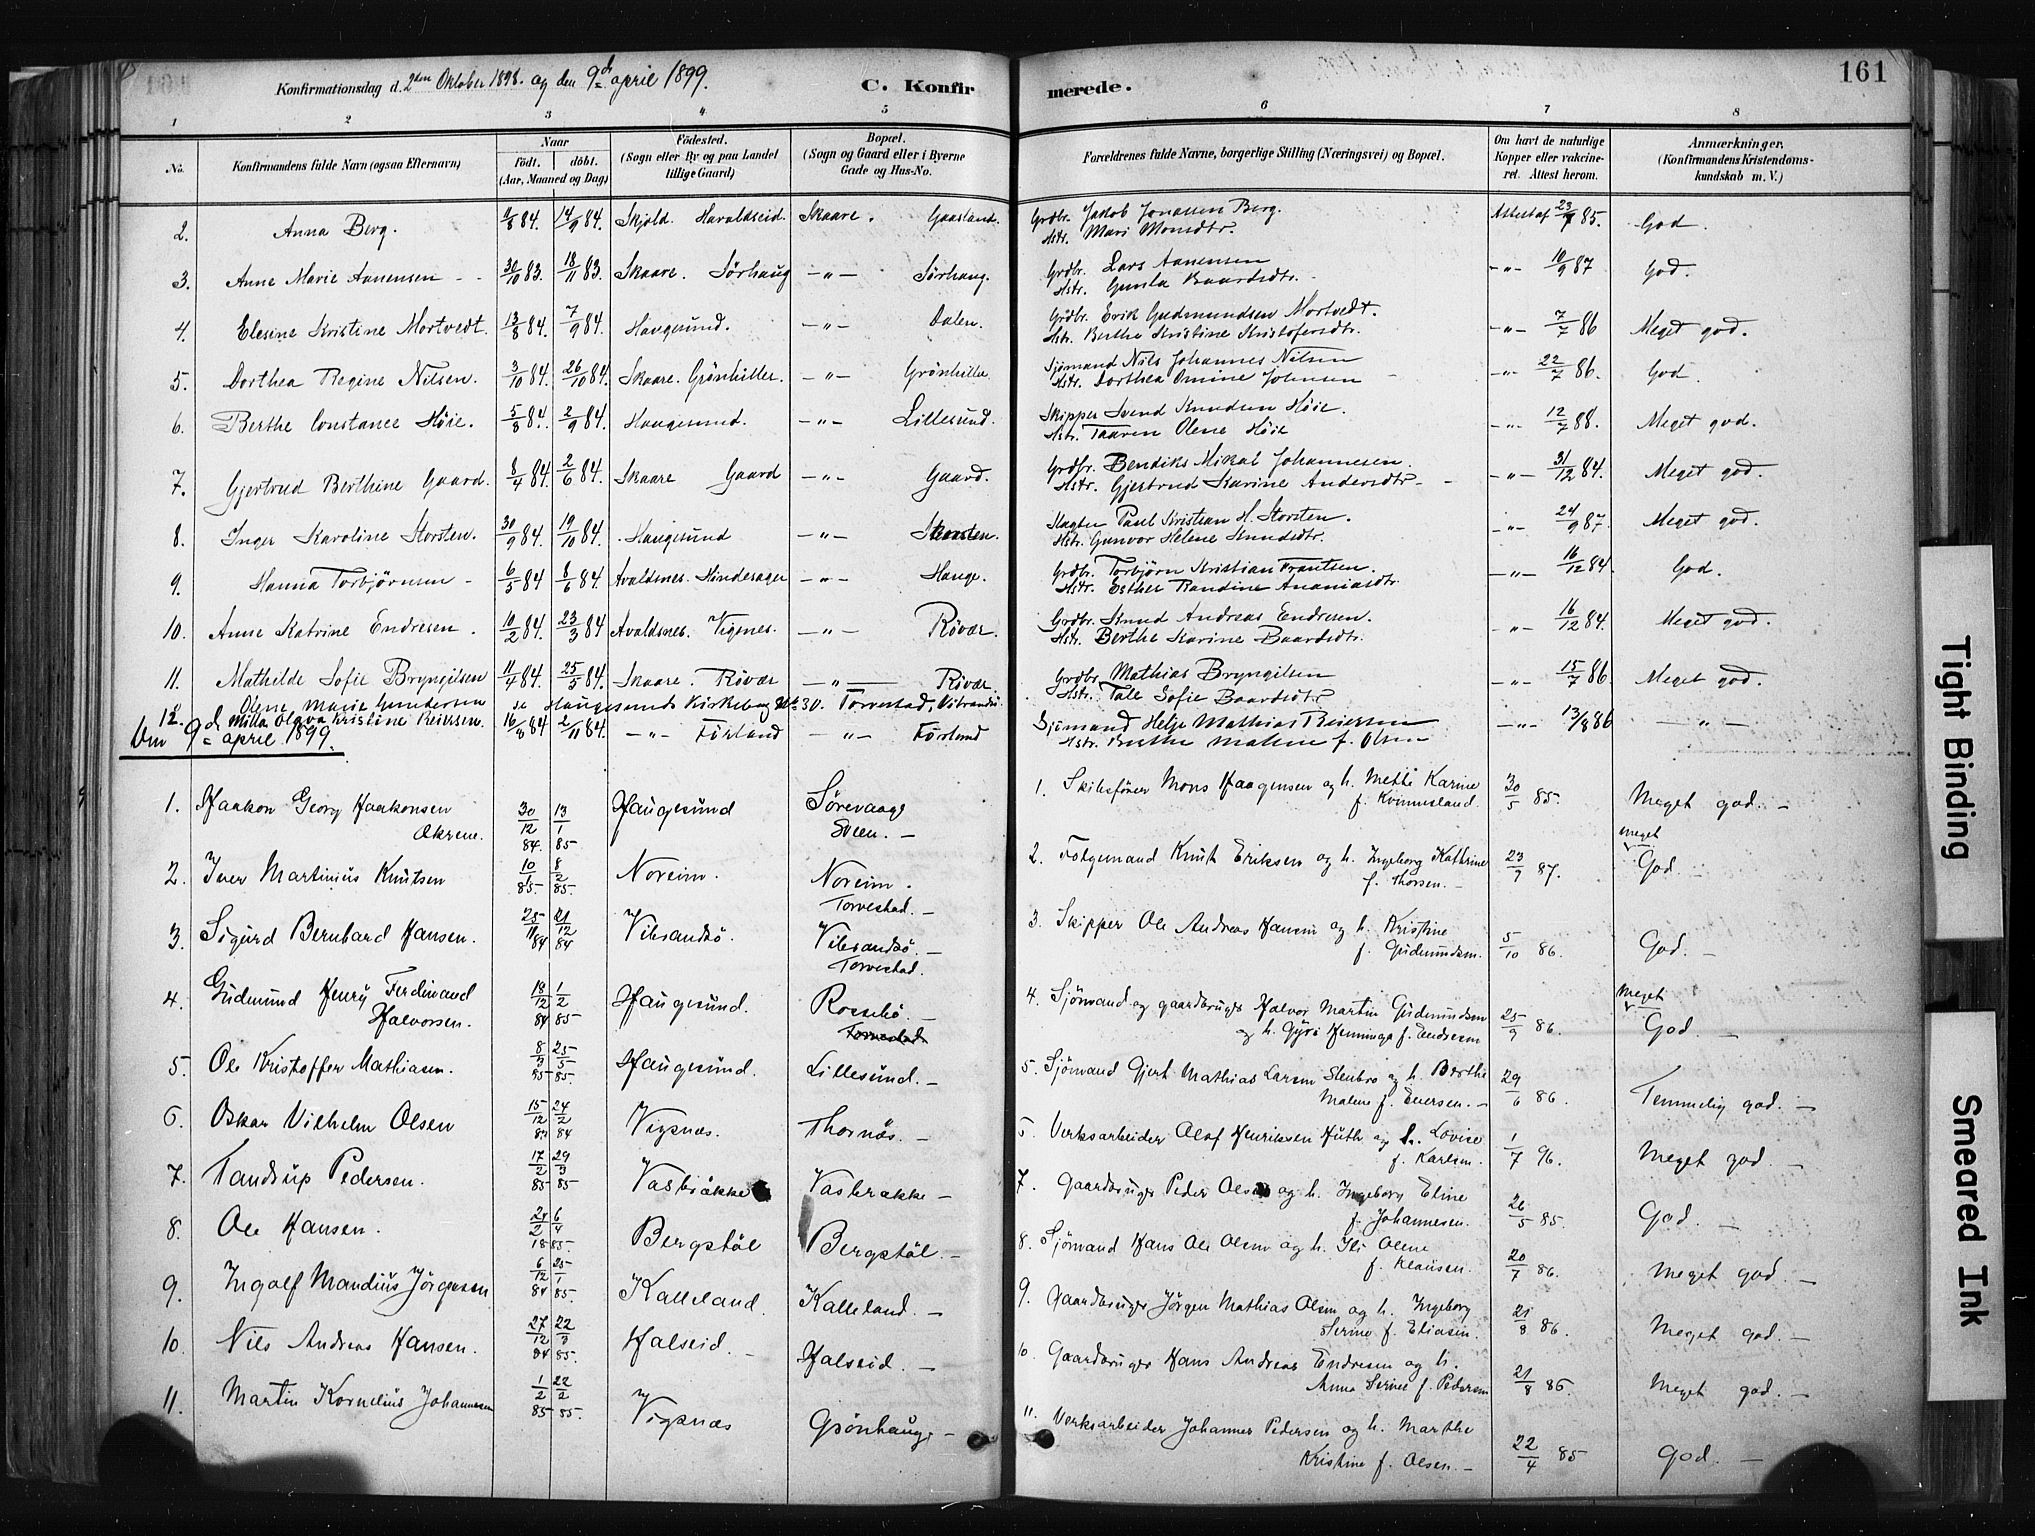 Konfirmationsdag d. 2den Oktober 1898. og den 9d april 1899.
C. Konfirmerede.
161
1 2 3 4 5 6 7 8
No. Konfirmandens fulde Navn (ogsaa Efternavn)
Naar født. døbt. (Aar, Maaned og Dag)
Födested. (Sogn eller By og paa Landet tillige Gaard)
Bopæl. (Sogn og Gaard eller i Byerne Gade og Hus-No.
Forældrenes fulde Navne, borgerlige Stilling (Næringsvei) og Bopæl.
Om havt de naturlige Kopper eller vaccineret. Attest herom.
Anmærkninger. (Konfirmandens Kristendomskundskab m. V.)
2. Anna Berg. 84. 14/9 84. Skjold. Haraldseid. Skaare. Gaasland. Grdbr. Jakob Jonassen Berg. Attest af 23/7 85. God.
Hstr. Mari Monsdtr.
3. Anne Marie Aanensen 30/10 83. 18/11 83. Skaare. Sørhaug -"- Sørhaug. Grdbr. Lars Aanensen -"- 10/9 87 God.
Hstr. Gunla Baardsdtr.
4. Elesine Kristine Mortvedt. 13/8 84. 7/9 84. Haugesund. -"- Dalen. Grdbr. Erik Gudmundsen Mortvedt. -"- 7/7 86 Meget god.
Hstr. Berthe Kristine Kristofersdtr.
5. Dorthea Regine Nilsen. 3/10 84. 26/10 84. Skaare. Grönhiller. -"- Grönhille. Sjømand Nils Johannes Nilsen -"- 22/7 86. God.
Hstr. Dorthea Omine Johnsen
6. Berthe Constance Høie. 5/8 84. 2/9 84. Haugesund. -"- Lillesund. Skipper Svend Knudsen Høie. -"- 12/7 88. Meget god.
Hstr. Taaren Olene Høie
7. Gjertrud Berthine Gaard. 8/4 84. 2/6 84. Skaare Gaard -"- Gaard. Grdbr. Bendiks Mikal Johannesen. -"- 31/12 84. Meget god.
Hstr. Gjertrud Karine Andersdtr.
8. Inger Karoline Storsten. 30/9 84. 19/10 84. Haugesund -"- Storsten. Paul Kristian H. Storsten. -"- 24/9 87. Meget god.
Hstr. Gunvor Helene Knudsdtr.
9. Hanna Torbjørnsen 6/5 84 8/6 84. Avaldsnes. Hindesager -"- Hauge. Grdbr. Torbjørn Kristian Frantsen. -"- 16/12 84. God.
Hstr. Esther Randine Ananiasdtr.
10. Anne Katrine Endresen. 10/2 84. 23/3 84 Avaldsnes. Vigsnes. -"- Røvær. Grdbr. Knud Andreas Endresen. -"- 16/12 84. Meget god.
Hstr. Berthe Karine Baardsdtr.
11. Mathilde Sofie Bryngilsen 11/4 84. 25/5 84. Skaare. Røvær -"- Røvær. Grdbr. Mathias Bryngilsen -"- 15/7 86. Meget god.
Hstr. Tale Sofie Baardsdtr
Olene Marie Gundersen se Haugesunds Kirkebog No 30. Torvestad, Vibrandsö
12. Milla Olava Kristine Reiersen. 16/8 84 2/11 84. -"- Førland -"- Førland Sjømand Helje Mathias Reiersen -"- 13/8 86 -"-
Hstr. Berthe Malene f. Olsen
Den 9d april 1899.
1. Haakon Georg Haakonsen 30/12 84. 13/1 85 Haugesund Sørevaage 1. Skibsfører Mons Haagensen og h. Mette Karine 30/5 85. Meget god.
Økrene. Sveen. f. Kvinnesland.
2. Iver Martinius Knutsen 10/1 85. 8/2 85. Noreim. Noreim. 2. Følgemand Knut Eriksen og h. Ingeborg Kathrine 23/9 87. meget God.
Torvestad. f. Thorsen.
3. Sigurd Bernhard Hansen. 25/11 84 21/12 84 Vibrandsö. Vibrandsö. 3. Skipper Ole Andreas Hansen og h. Kristine 5/10 86. God.
Torvestad. f. Gudmundsen.
4. Gudmund Henry Ferdinand 18/12 84 1/2 85 Haugesund. Rossebö. 4. Sjømand og gaardbruger Halvor Martin Gudmundsen 25/9 86. meget God
Halvorsen. Torvestad og h. Gyri Henninga f. Endresen
5. Ole Kristoffer Mathiasen. 8/3 85 25/5 85. Haugesund. Lillesund. 5. Sjømand Gjert Mathias Larsen Stenbro og h. Berthe 29/6 86. Temmelig god.
Malene f. Enersen.
6. Oskar Vilhelm Olsen 15/12 83 24/2 84 Vigsnæs. Thornäs. 5. Verksarbeider Olaf Henriksen Huth og h. Lovise 1/7 96. Meget god.
f. Karlsen.
7. Tandrup Pedersen. 17/2 85 29/3 85 Vasbrække Vasbrække 7. Gaardbruger Peder Olsen og h. Ingeborg Eline 26/5 85. God.
f. Johannesen.
8. Ole Hansen. 24/2 6/4 85. Bergstöl Bergstöl. 8. Sjømand Hans Ole Olsen og h. Ili Olene 20/7 86. Meget god.
f. Klausen.
9. Ingolf Mandius Jörgensen 6/12 84 25/1 85. Kalleland. Kalleland. 9. Gaardbruger Jörgen Mathias Olsen og h. Ingeborg 21/8 86. Meget god.
Serine f. Eliasen.
10. Nils Andreas Hansen. 27/12 84 22/3 85. Halseid. Halseid. 10. Gaardbruger Hans Andreas Endresen og h. 21/8 86. Meget god.
Anna Serine f. Pedersen
11. Martin Kornelius Johannesen 1/2 85 22/2 85. Vigsnæs Grönhaug. 11. Verksarbeider Johannes Pedersen og h. Marthe 22/4 85 God.
Kristine f. Olsen.
Tight Binding
Smeared Ink